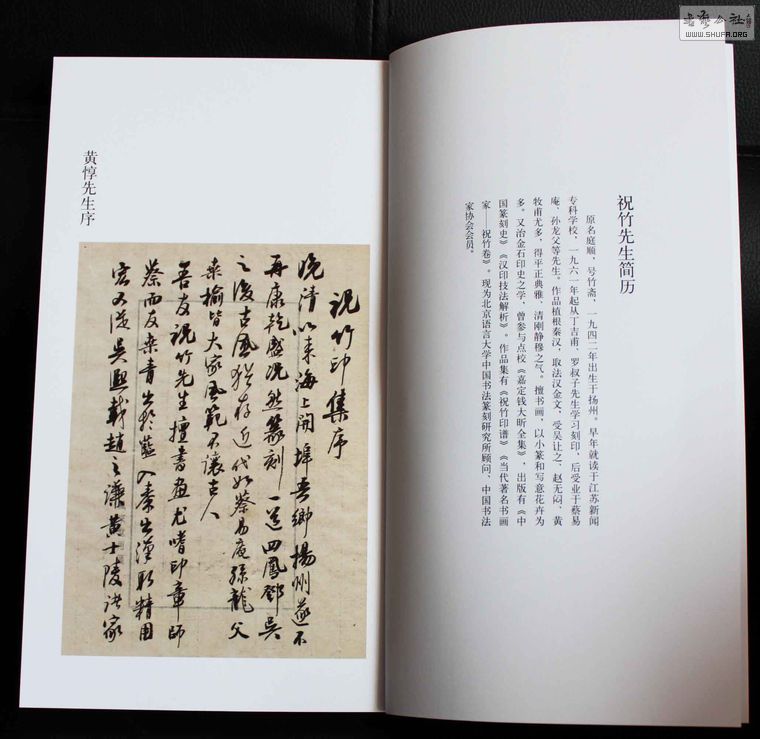 祝竹先生简历
原名庭顺，号竹斋，一九四二年出生于扬州。早年就读于江苏新闻
专科学校，一九六一年起从丁吉甫、罗叔子先生学习刻印，后受业于蔡易
庵、孙龙父等先生。作品植根秦汉，取法汉金文，受吴让之、赵无闷、黄
牧甫尤多，得平正典雅、清刚静穆之气。擅书画，以小篆和写意花卉为
多。又治金石印史之学，曾参与点校《嘉定钱大昕全集》，出版有《中
国篆刻史》《汉印技法解析》。作品集有《祝竹印谱》《当代著名书画
家——祝竹卷》。现为北京语言大学中国书法篆刻研究所顾问、中国书法
家协会会员。
黄惇先生序
祝竹印集序
晚清以来海上開埠吾鄉揚州遂不
再康乾盛况然篆刻一道四鳳鄧吴
之後古風猶存近代如蔡易庵孫龍父
桑榆皆大家風範不讓古人
吾友祝竹先生擅書畫尤嗜印章師
蔡而友桑青出於藍入秦出漢取精用
宏又從吴熙載趙之謙黄士陵諸家
書藝公社
WWW.SHUFA.ORG